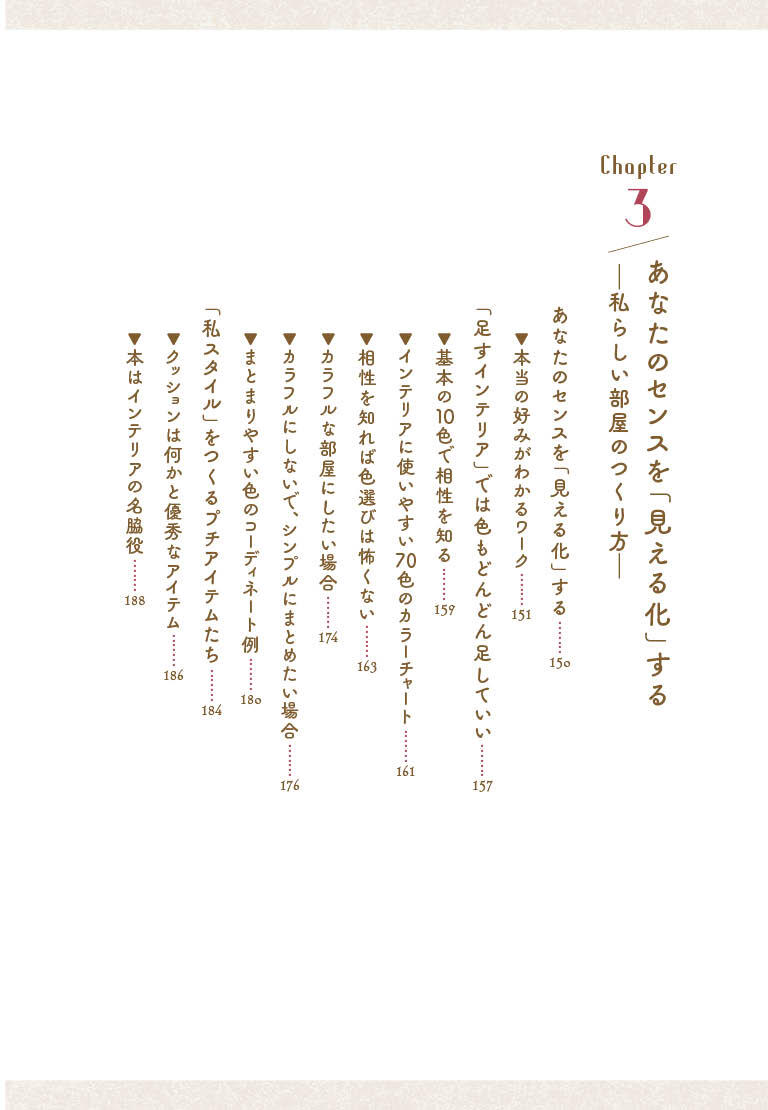 Chapter
3
あなたのセンスを「見える化」する
―私らしい部屋のつくり方―
あなたのセンスを「見える化」する……150
▼本当の好みがわかるワーク……151
「足すインテリア」では色もどんどん足していい……157
▼基本の10色で相性を知る……159
▼インテリアに使いやすい70色のカラーチャート……161
▼相性を知れば色選びは怖くない……163
▼カラフルな部屋にしたい場合……174
▼カラフルにしないで、シンプルにまとめたい場合……176
▼まとまりやすい色のコーディネート例……180
「私スタイル」をつくるプチアイテムたち……184
▼クッションは何かと優秀なアイテム……186
▼本はインテリアの名脇役……188